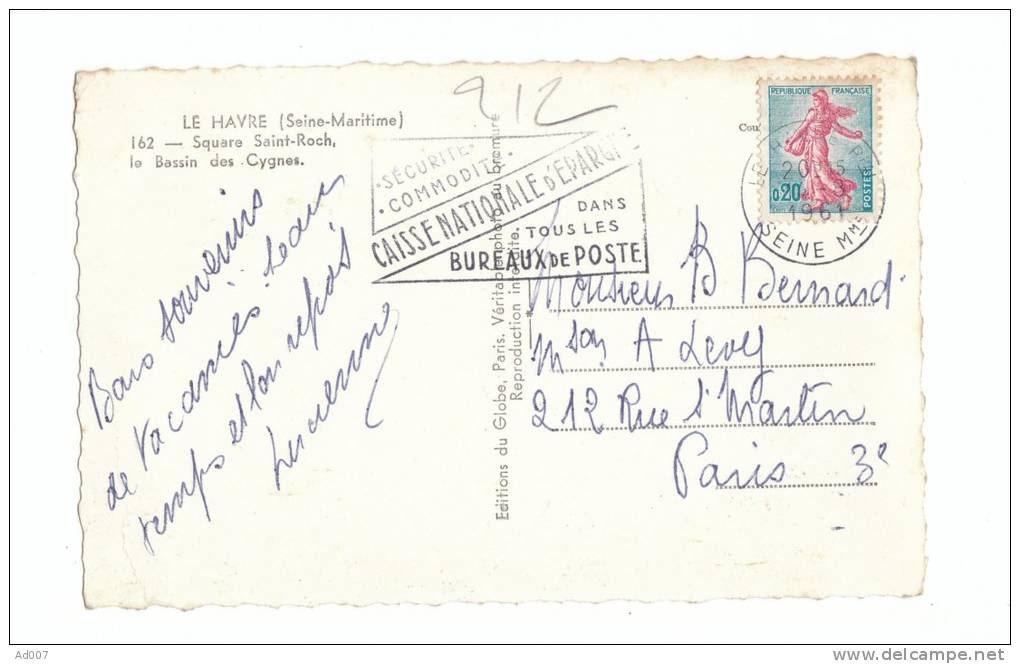 LE HAVRE (Seine-Maritime)
162 — Square Saint-Roch,
le Bassin des Cygnes.
Bons souvenirs
de Vacances. beau
temps et bon repos
Lucienne
912
·SÉCURITÉ·
·COMMODITÉ·
CAISSE NATIONALE D'ÉPARGNE
DANS
TOUS LES
BUREAUX DE POSTE
Editions du Globe, Paris. Véritable photo au bromure
Reproduction interdite.
REPUBLIQUE FRANÇAISE
0,20
POSTES
1961
SEINE Mme
Monsieur B Bernard
mson A Levy
212 Rue St Martin
Paris 3e
Ad007
delcampe.net